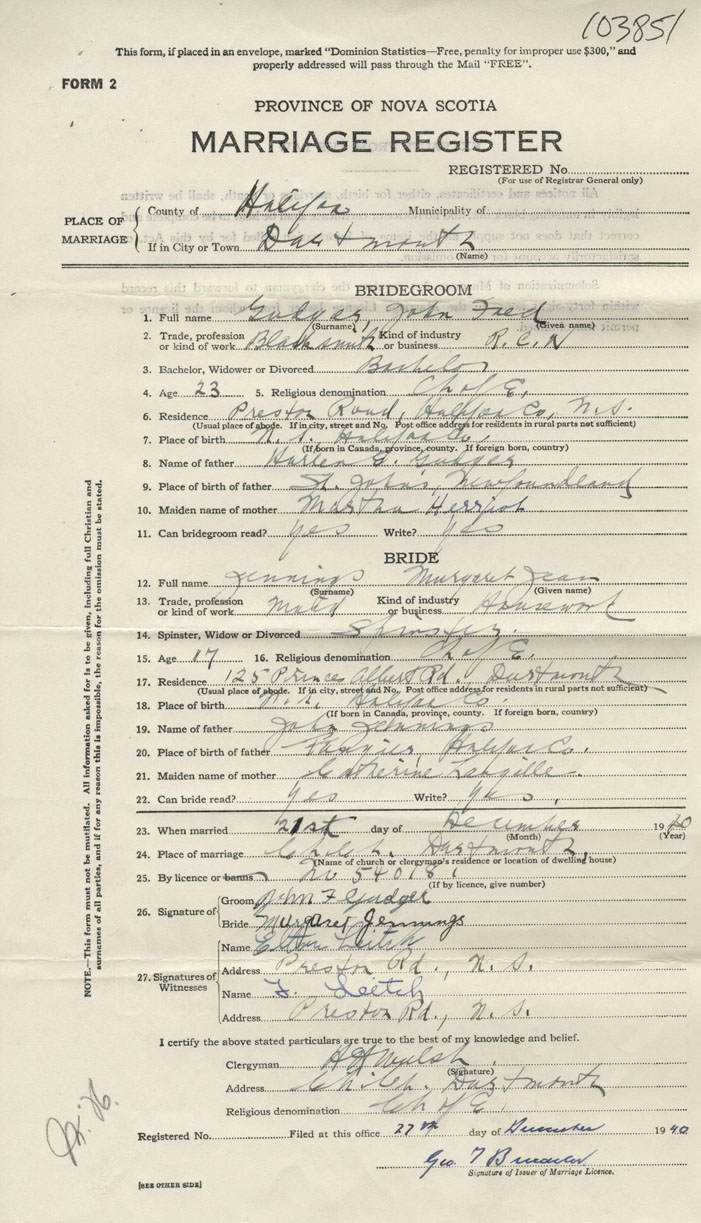 103851
This form, if placed in an envelope, marked "Dominion Statistics—Free, penalty for improper use $300," and
properly addressed will pass through the Mail "FREE".
FORM 2
PROVINCE OF NOVA SCOTIA
MARRIAGE REGISTER
REGISTERED No.
(For use of Registrar General only)
PLACE OF MARRIAGE
County of Halifax Municipality of
If in City or Town Dartmouth
(Name)
BRIDEGROOM
1. Full name Gudger, John Fred
(Surname) (Given name)
2. Trade, profession or kind of work Blacksmith Kind of industry or business R.C.N
3. Bachelor, Widower or Divorced Bachelor
4. Age 23 5. Religious denomination Ch of E.
6. Residence Preston Road, Halifax Co, N.S.
(Usual place of abode. If in city, street and No. Post office address for residents in rural parts not sufficient)
7. Place of birth N.S. Halifax Co,
(If born in Canada, province, county. If foreign born, country)
8. Name of father E. Gudger
9. Place of birth of father St. John's, Newfoundland
10. Maiden name of mother Martha
11. Can bridegroom read? yes Write? yes
BRIDE
12. Full name Jennings Margaret Jean
(Surname) (Given name)
13. Trade, profession or kind of work Maid Kind of industry or business Housework
14. Spinster, Widow or Divorced Spinster
15. Age 17 16. Religious denomination Ch of E.
17. Residence 125 Princes Albert Rd. Dartmouth
(Usual place of abode. If in city, street and No. Post office address for residents in rural parts not sufficient)
18. Place of birth N.S. Halifax Co
(If born in Canada, province, county. If foreign born, country)
19. Name of father John Jennings
20. Place of birth of father Halifax Co.
21. Maiden name of mother Catherine
22. Can bride read? yes Write? yes,
23. When married 21st day of December 1940
(Month) (Year)
24. Place of marriage Dartmouth,
(Name of church or clergyman's residence or location of dwelling house)
25. By licence or banns No 540181
(If by licence, give number)
26. Signature of
Groom John F Gudger
Bride Margaret Jennings
27. Signatures of Witnesses
Name Leitch
Address Preston Rd., N.S.
Name Leetch
Address Preston Rd., N.S.
I certify the above stated particulars are true to the best of my knowledge and belief.
Clergyman Walsh
(Signature)
Address Dartmouth
Religious denomination Ch of E,
Registered No. Filed at this office 27th day of December 1940
Geo.
Signature of Issuer of Marriage Licence.
[SEE OTHER SIDE]
NOTE.—This form must not be mutilated. All information asked for is to be given, including full Christian and
surnames of all parties, and if for any reason this is impossible, the reason for the omission must be stated.